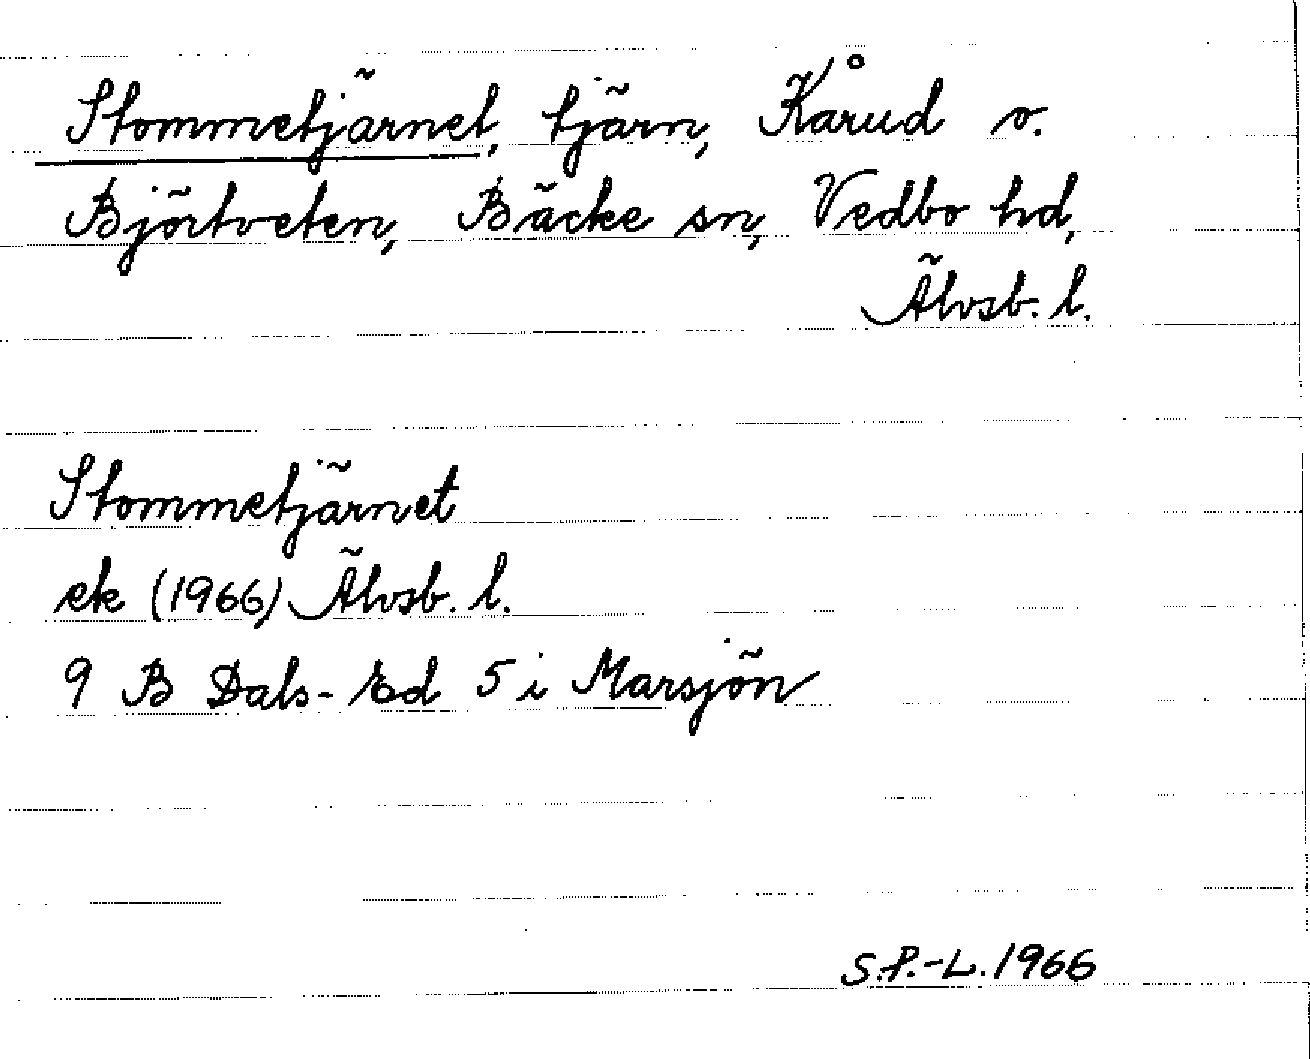 Stommetjärnet, tjärn, Kårud o.
Björtveten, Bäcke sn, Vedbo hd,
Älvsb. l.
Stommetjärnet
ek (1966) Älvsb. l.
9 B Dals-Ed 5 i Marsjön
S.P.-L. 1966